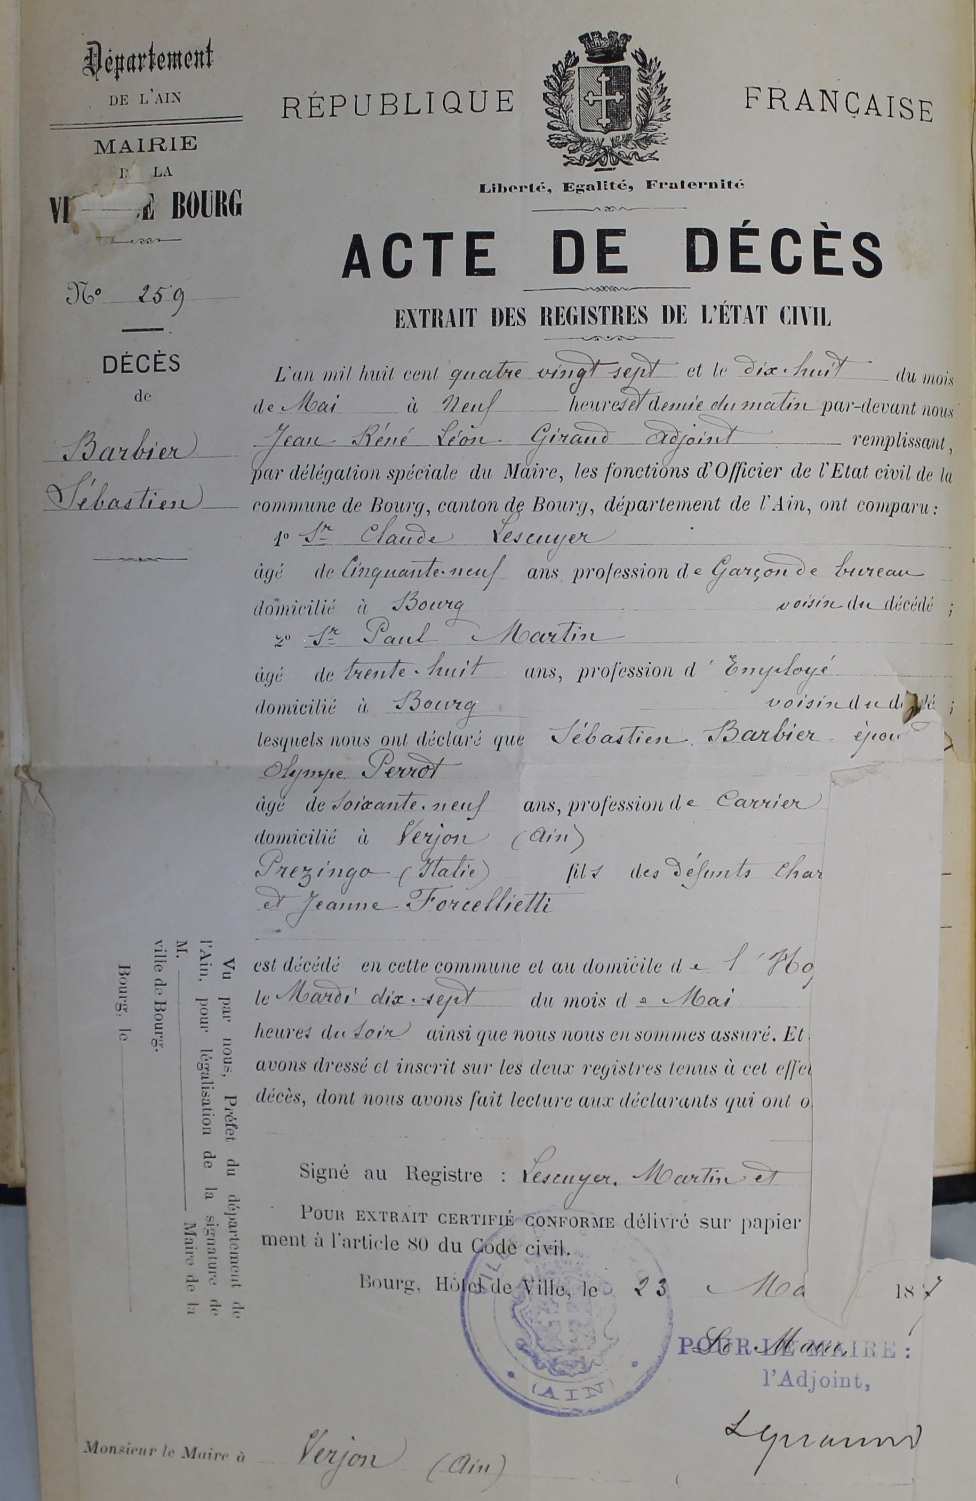 Département
DE L'AIN
MAIRIE
LA
BOURG
RÉPUBLIQUE FRANÇAISE
Liberté, Egalité, Fraternité
ACTE DE DÉCÈS
EXTRAIT DES REGISTRES DE L'ÉTAT CIVIL
No 259
DÉCÈS
de
Barbier
Sébastien
L'an mil huit cent quatre vingt sept et le dix-huit du mois
de Mai à Neuf heures et demie du matin par-devant nous
Jean Réné Léon Giraud adjoint remplissant,
par délégation spéciale du Maire, les fonctions d'Officier de l'Etat civil de la
commune de Bourg, canton de Bourg, département de l'Ain, ont comparu :
1o Sr Claude Lescuyer
âgé de Cinquante-neuf ans profession de Garçon de bureau
domicilié à Bourg voisin du décédé ;
2o Sr Paul Martin
âgé de trente-huit ans, profession d'Employé
domicilié à Bourg voisin du ;
lesquels nous ont déclaré que Sébastien Barbier épou
Olympe Perrot
âgé de Soixante-neuf ans, profession de Carrier
domicilié à Verjon (Ain)
Prezingo (Italie) fils des défunts Char
et Jeanne Forcellietti
est décédé en cette commune et au domicile de l'Ho
le Mardi dix-sept du mois de Mai
heures du soir ainsi que nous nous en sommes assuré. Et
avons dressé et inscrit sur les deux registres tenus à cet effe
décès, dont nous avons fait lecture aux déclarants qui ont
Signé au Registre : Lescuyer, Martin et
POUR EXTRAIT CERTIFIÉ CONFORME délivré sur papier
ment à l'article 80 du Code civil.
Bourg, Hôtel de Ville, le 23 Ma 18 7
Le Maire
POUR LE MAIRE :
l'Adjoint,
(AIN)
Monsieur le Maire à Verjon (Ain)
Vu par nous, Préfet du département de
l'Ain, pour légalisation de la signature de
M. Maire de la
ville de Bourg.
Bourg, le